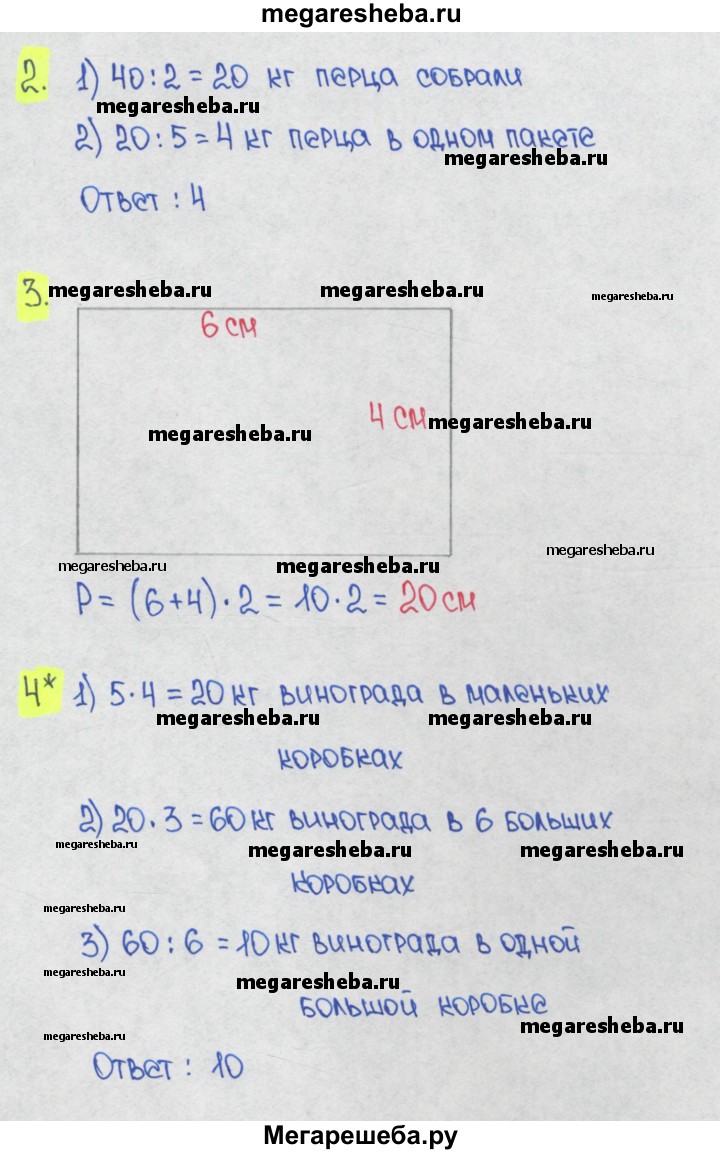 megaresheba.ru
2. 1) 40 : 2 = 20 кг перца собрали
megaresheba.ru
2) 20 : 5 = 4 кг перца в одном пакете
megaresheba.ru
Ответ : 4
3. megaresheba.ru megaresheba.ru megaresheba.ru
6 см
4 см megaresheba.ru
megaresheba.ru
megaresheba.ru
megaresheba.ru megaresheba.ru
P = (6+4) · 2 = 10 · 2 = 20 см
4* 1) 5 · 4 = 20 кг винограда в маленьких
megaresheba.ru megaresheba.ru
коробках
2) 20 · 3 = 60 кг винограда в 6 больших
megaresheba.ru megaresheba.ru megaresheba.ru
коробках
megaresheba.ru
3) 60 : 6 = 10 кг винограда в одной
megaresheba.ru megaresheba.ru
большой коробке
megaresheba.ru megaresheba.ru
Ответ : 10
Мегарешеба.ру